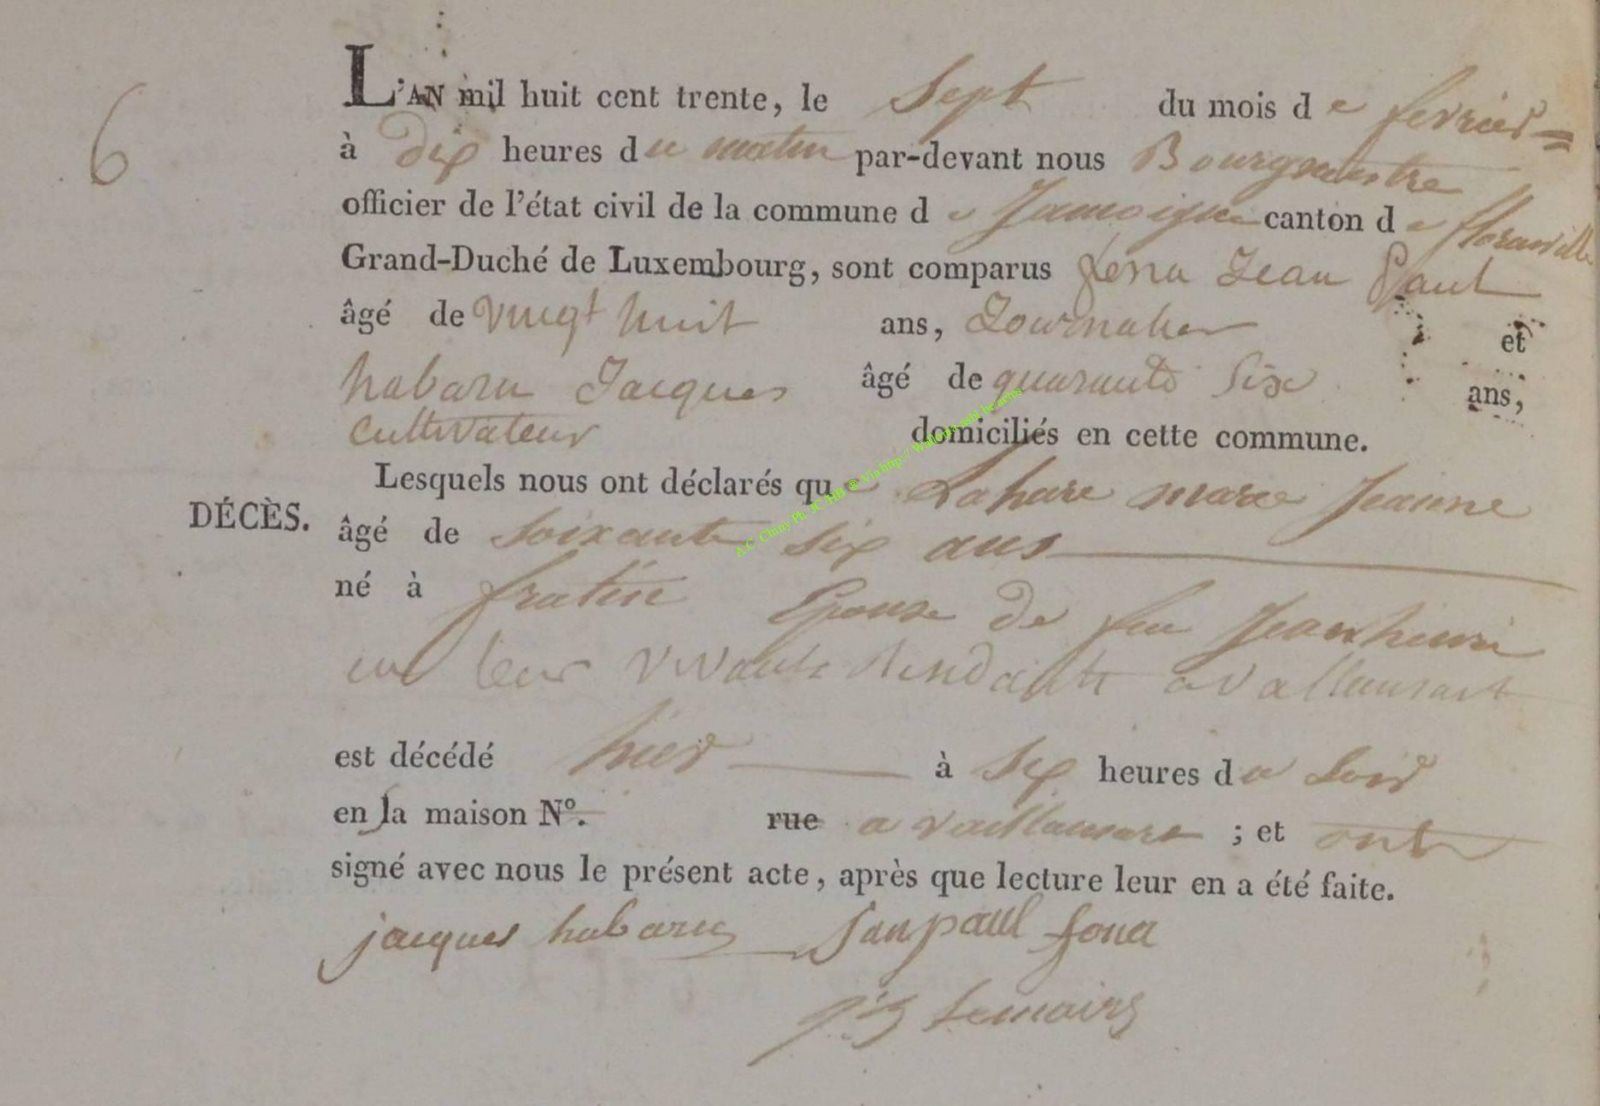 6
L'AN mil huit cent trente, le Sept du mois de fevrier
à dix heures du matin par-devant nous Bourgmestre
officier de l'état civil de la commune de Jamoigne canton de florenville
Grand-Duché de Luxembourg, sont comparus Jean Paul
âgé de vingt huit ans, Journalier et
habaru Jacques âgé de quarante Six ans,
Cultivateur domiciliés en cette commune.
Lesquels nous ont déclarés que Lahure marie Jeanne
DÉCÈS. âgé de Soixante six ans
né à fratin Epouse de feu Jean henri
leur vivant
est décédé hier à six heures du Soir
en la maison N°. rue a ; et ont
signé avec nous le présent acte, après que lecture leur en a été faite.
jacques habaru
Lemaire